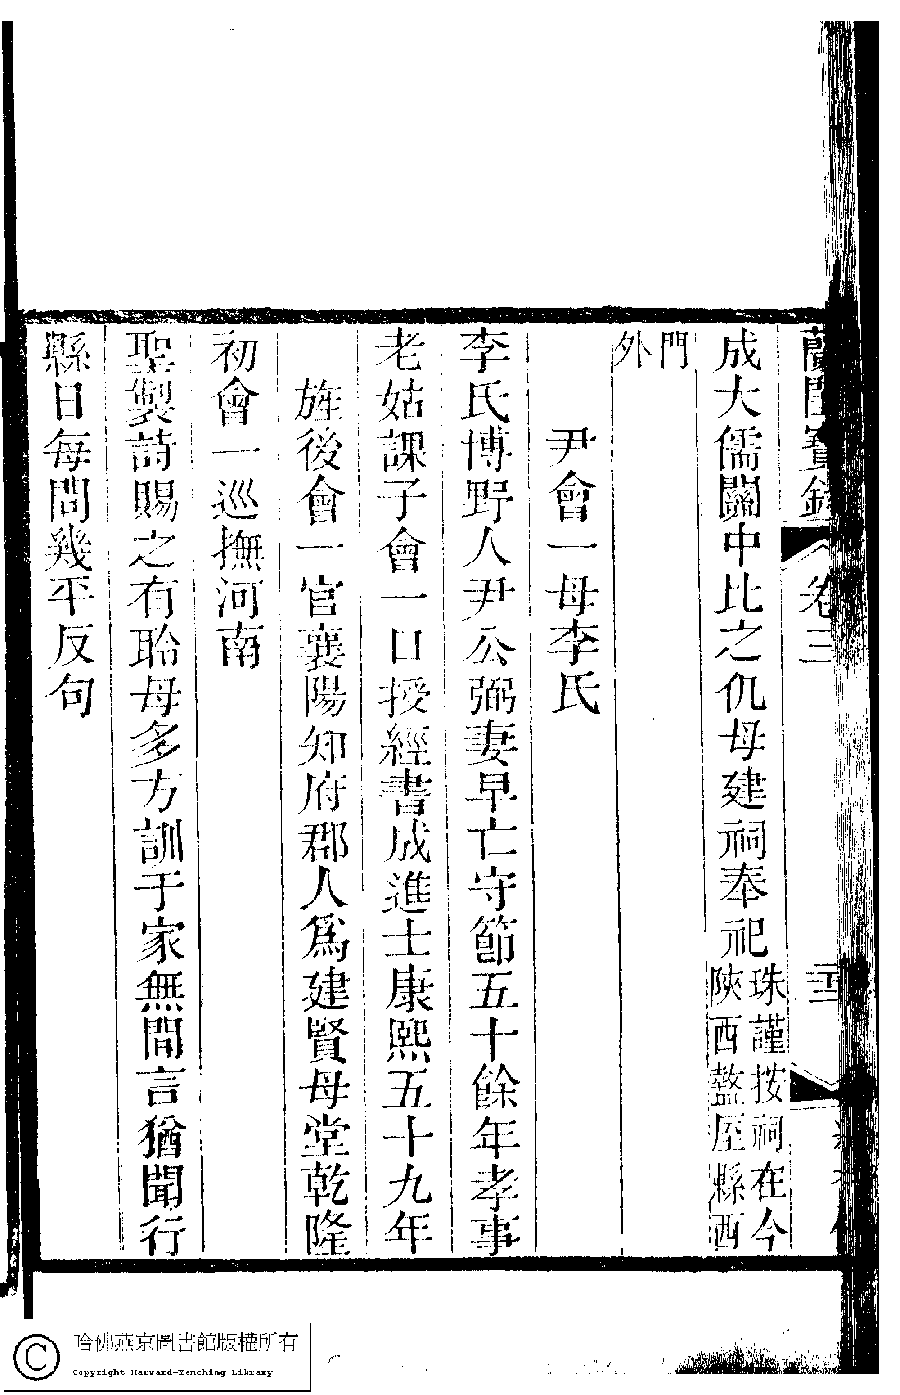 蘭閨寶錄 卷三 三
成大儒關中比之仉母建祠奉祀珠謹按祠在今
陝西盩厔縣西
門
外
尹會一母李氏
李氏博野人尹公弼妻早亡守節五十餘年孝事
老姑課子會一口授經書成進士康熙五十九年
旌後會一官襄陽知府郡人爲建賢母堂乾隆
初會一巡撫河南
聖製詩賜之有聆母多方訓于家無間言猶聞行
縣日每問幾平反句
哈佛燕京圖書館版權所有
Copyright Harvard-Yenching Library